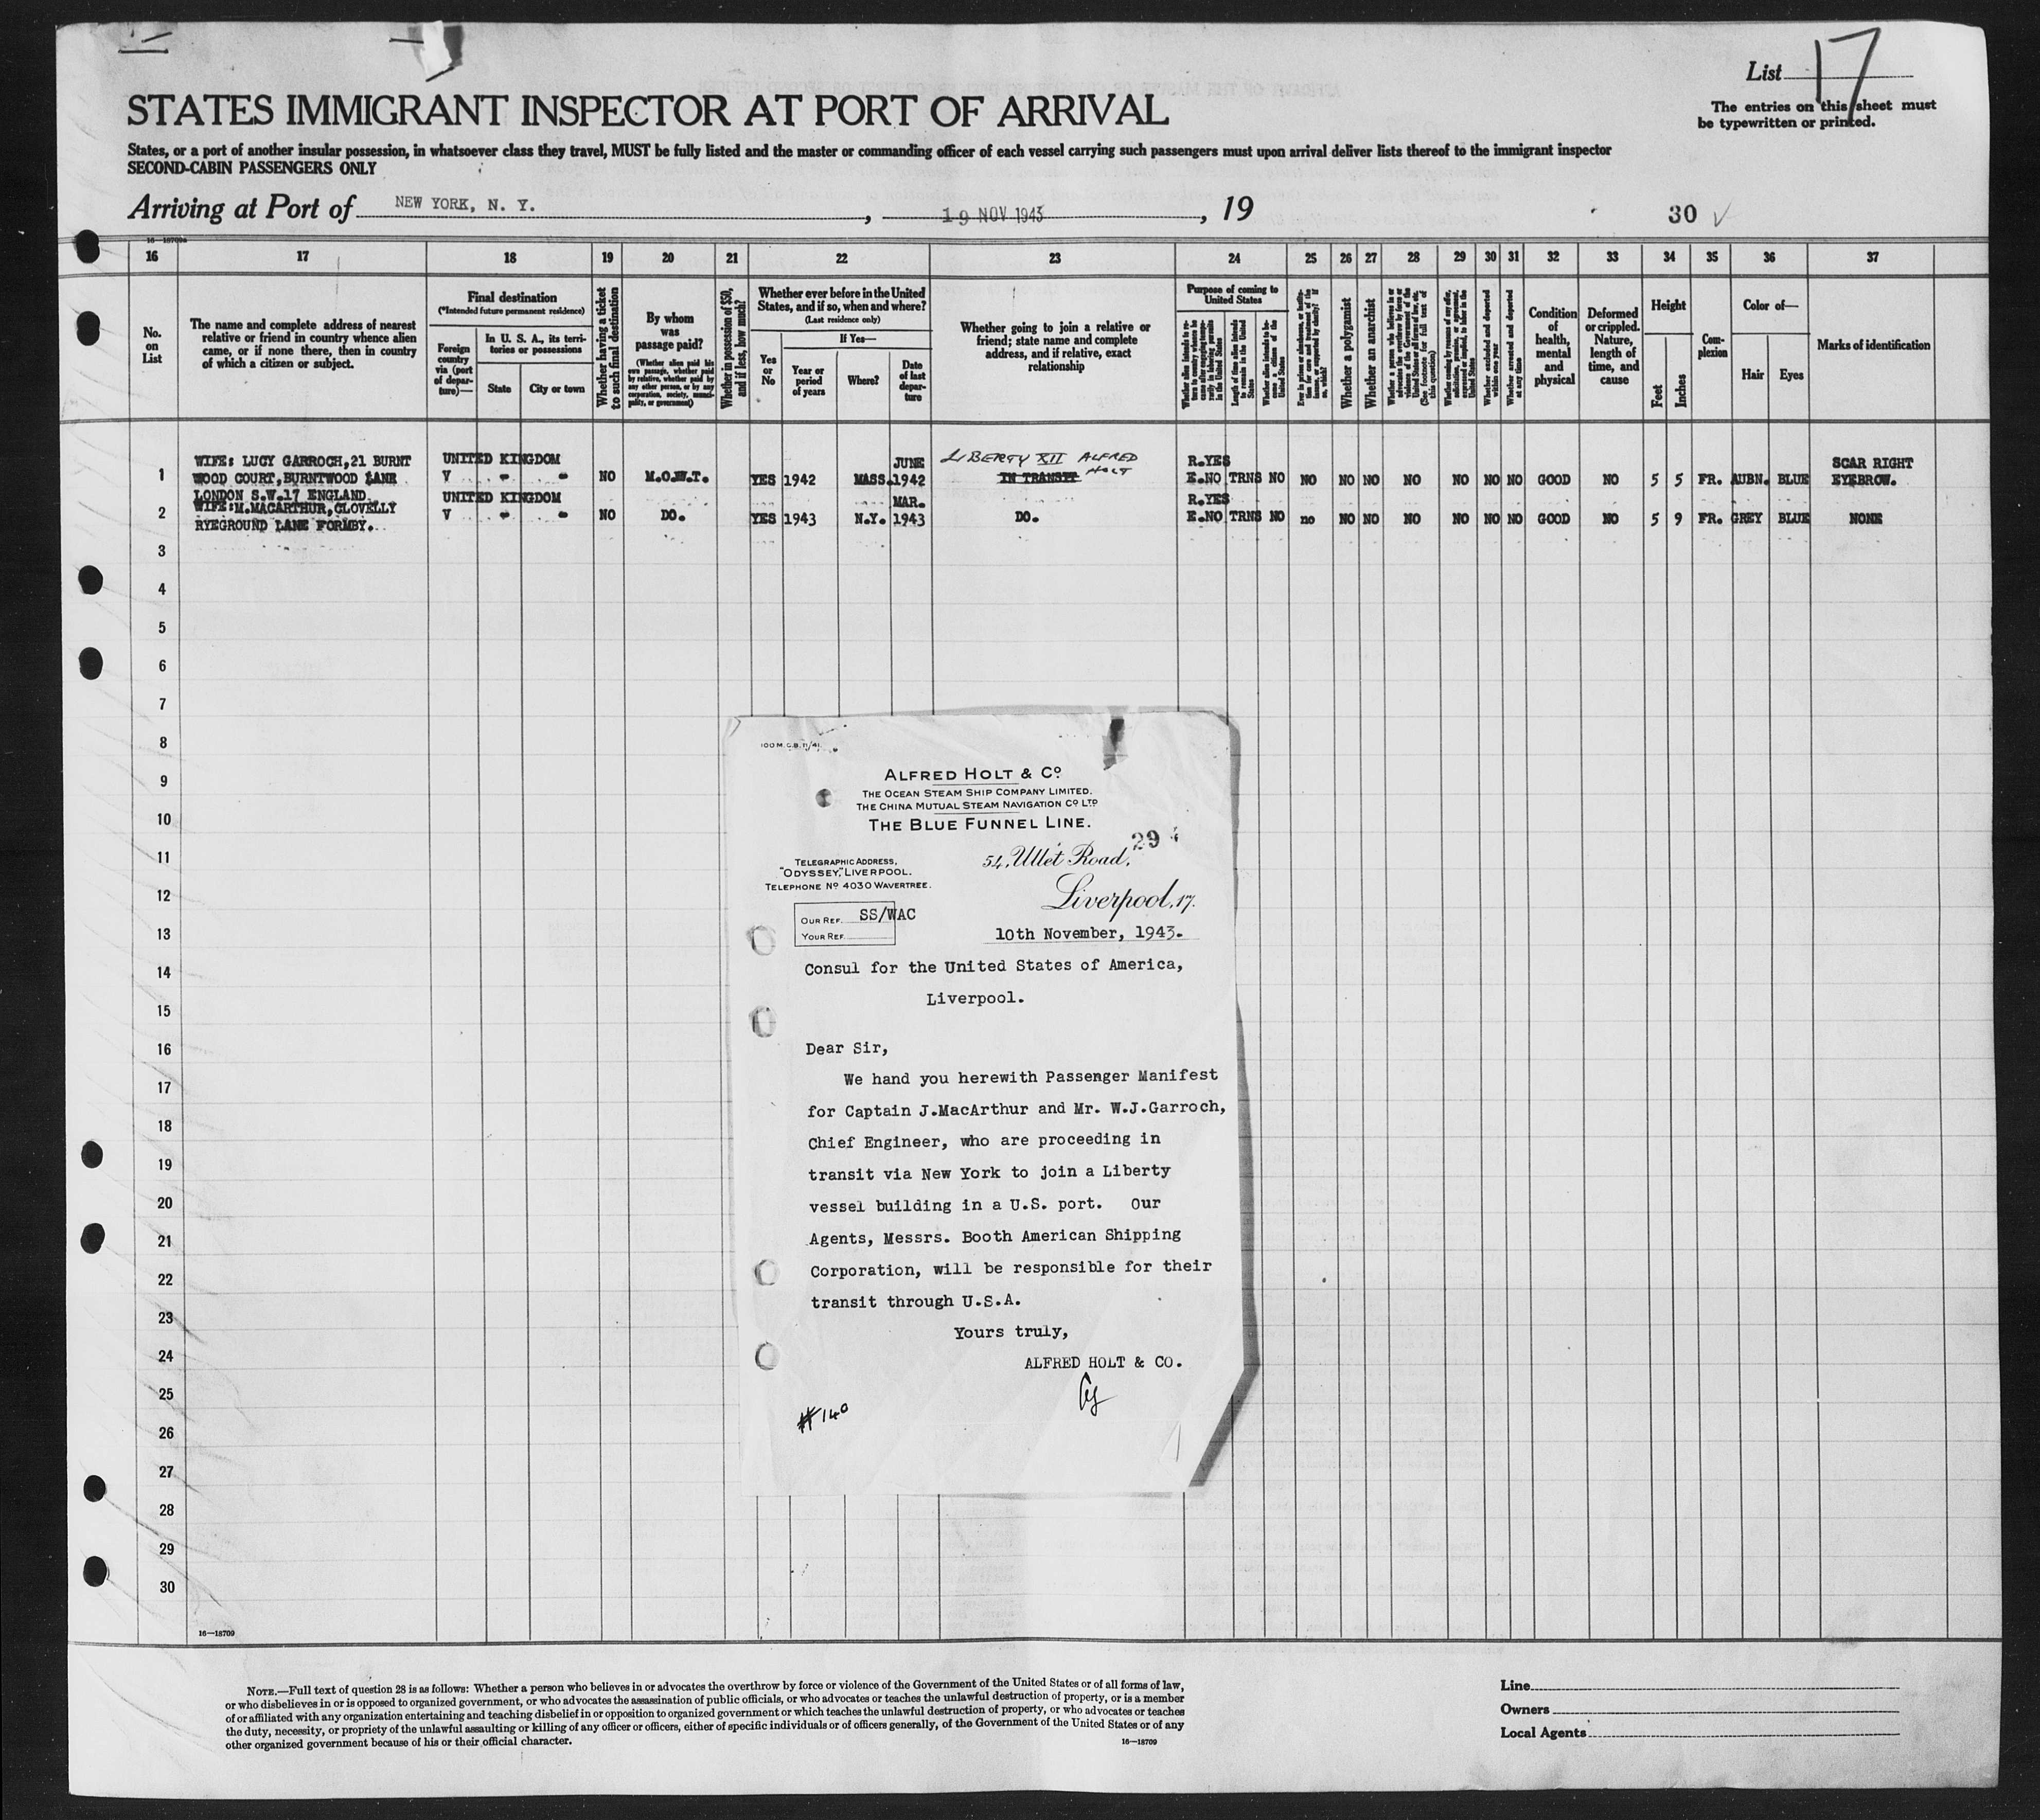 List 17
STATES IMMIGRANT INSPECTOR AT PORT OF ARRIVAL
The entries on this sheet must
be typewritten or printed.
States, or a port of another insular possession, in whatsoever class they travel, MUST be fully listed and the master or commanding officer of each vessel carrying such passengers must upon arrival deliver lists thereof to the immigrant inspector
SECOND-CABIN PASSENGERS ONLY
Arriving at Port of NEW YORK, N. Y. , 19 NOV 1943 , 19 30 ✓
16 17 18 19 20 21 22 23 24 25 26 27 28 29 30 31 32 33 34 35 36 37
No. on List
The name and complete address of nearest
relative or friend in country whence alien
came, or if none there, then in country
of which a citizen or subject.
Final destination
(*Intended future permanent residence)
Foreign country via (port of departure)—
In U. S. A., its territories or possessions
State
City or town
Whether having a ticket to such final destination
By whom was passage paid?
(Whether alien paid his own passage, whether paid by relative, whether paid by any other person, or by any corporation, society, municipality, or government)
Whether in possession of $50, and if less, how much?
Whether ever before in the United States, and if so, when and where?
(Last residence only)
Yes or No
If Yes—
Year or period of years
Where?
Date of last departure
Whether going to join a relative or
friend; state name and complete
address, and if relative, exact
relationship
Purpose of coming to United States
Whether alien intends to become a citizen of the United States
Whether a polygamist
Whether an anarchist
Whether excluded and deported within one year
Whether arrested and deported at any time
Condition of health, mental and physical
Deformed or crippled. Nature, length of time, and cause
Height
Feet
Inches
Complexion
Color of—
Hair
Eyes
Marks of identification
1 WIFE: LUCY GARROCH,21 BURNT
WOOD COURT,BURNTWOOD LANE
LONDON S.W.17 ENGLAND
UNITED KINGDOM
V - - NO M.O.W.T. YES 1942 MASS. JUNE 1942 LIBERTY XII ALFRED HOLT IN TRANSIT R.YES E.NO TRNS NO NO NO NO NO NO NO NO GOOD NO 5 5 FR. AUBN. BLUE SCAR RIGHT EYEBROW.
2 WIFE:M.MACARTHUR,CLOVELLY
RYEGROUND LANE FORMBY.
UNITED KINGDOM
V - - NO DO. YES 1943 N.Y. MAR. 1943 DO. R.YES E.NO TRNS NO no NO NO NO NO NO NO GOOD NO 5 9 FR. GREY BLUE NONE
3
4
5
6
7
8
9
10
11
12
13
14
15
16
17
18
19
20
21
22
23
24
25
26
27
28
29
30
ALFRED HOLT & CO
THE OCEAN STEAM SHIP COMPANY LIMITED.
THE CHINA MUTUAL STEAM NAVIGATION CO LTD
THE BLUE FUNNEL LINE.
29
TELEGRAPHIC ADDRESS,
"ODYSSEY," LIVERPOOL.
TELEPHONE No 4030 WAVERTREE.
54, Ullet Road,
Liverpool, 17.
OUR REF. SS/WAC
YOUR REF.
10th November, 1943.
Consul for the United States of America,
Liverpool.
Dear Sir,
We hand you herewith Passenger Manifest
for Captain J.MacArthur and Mr. W.J.Garroch,
Chief Engineer, who are proceeding in
transit via New York to join a Liberty
vessel building in a U.S. port. Our
Agents, Messrs. Booth American Shipping
Corporation, will be responsible for their
transit through U.S.A.
Yours truly,
ALFRED HOLT & CO.
#140
16—18709
NOTE.—Full text of question 28 is as follows: Whether a person who believes in or advocates the overthrow by force or violence of the Government of the United States or of all forms of law,
or who disbelieves in or is opposed to organized government, or who advocates the assassination of public officials, or who advocates or teaches the unlawful destruction of property, or is a member
of or affiliated with any organization entertaining and teaching disbelief in or opposition to organized government or which teaches the unlawful destruction of property, or who advocates or teaches
the duty, necessity, or propriety of the unlawful assaulting or killing of any officer or officers, either of specific individuals or of officers generally, of the Government of the United States or of any
other organized government because of his or their official character.
16—18709
Line
Owners
Local Agents